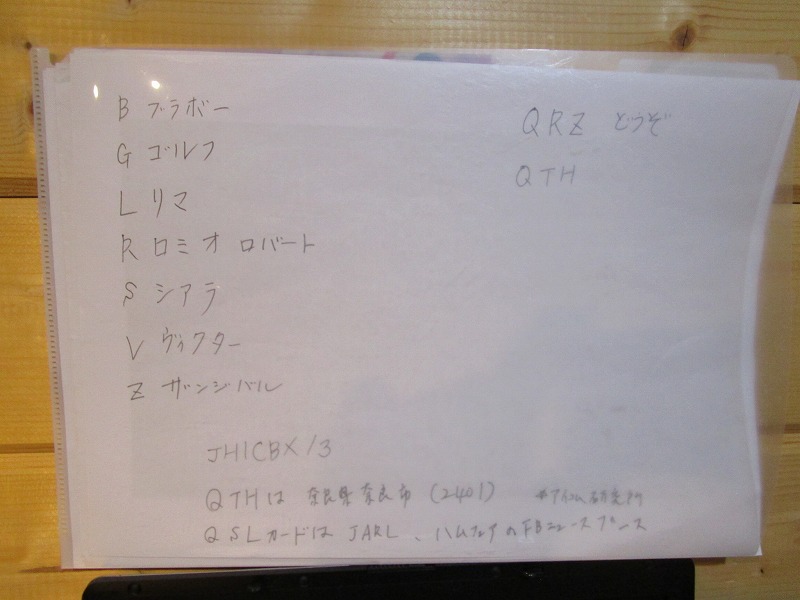 B ブラボー
G ゴルフ
L リマ
R ロミオ ロバート
S シアラ
V ヴィクター
Z ザンジバル
QRZ どうぞ
QTH
JH1CBX/3
QTHは 奈良県奈良市 (2401) *アイコム研究所
QSLカードは JARL、ハムフェアのFBニュースブース